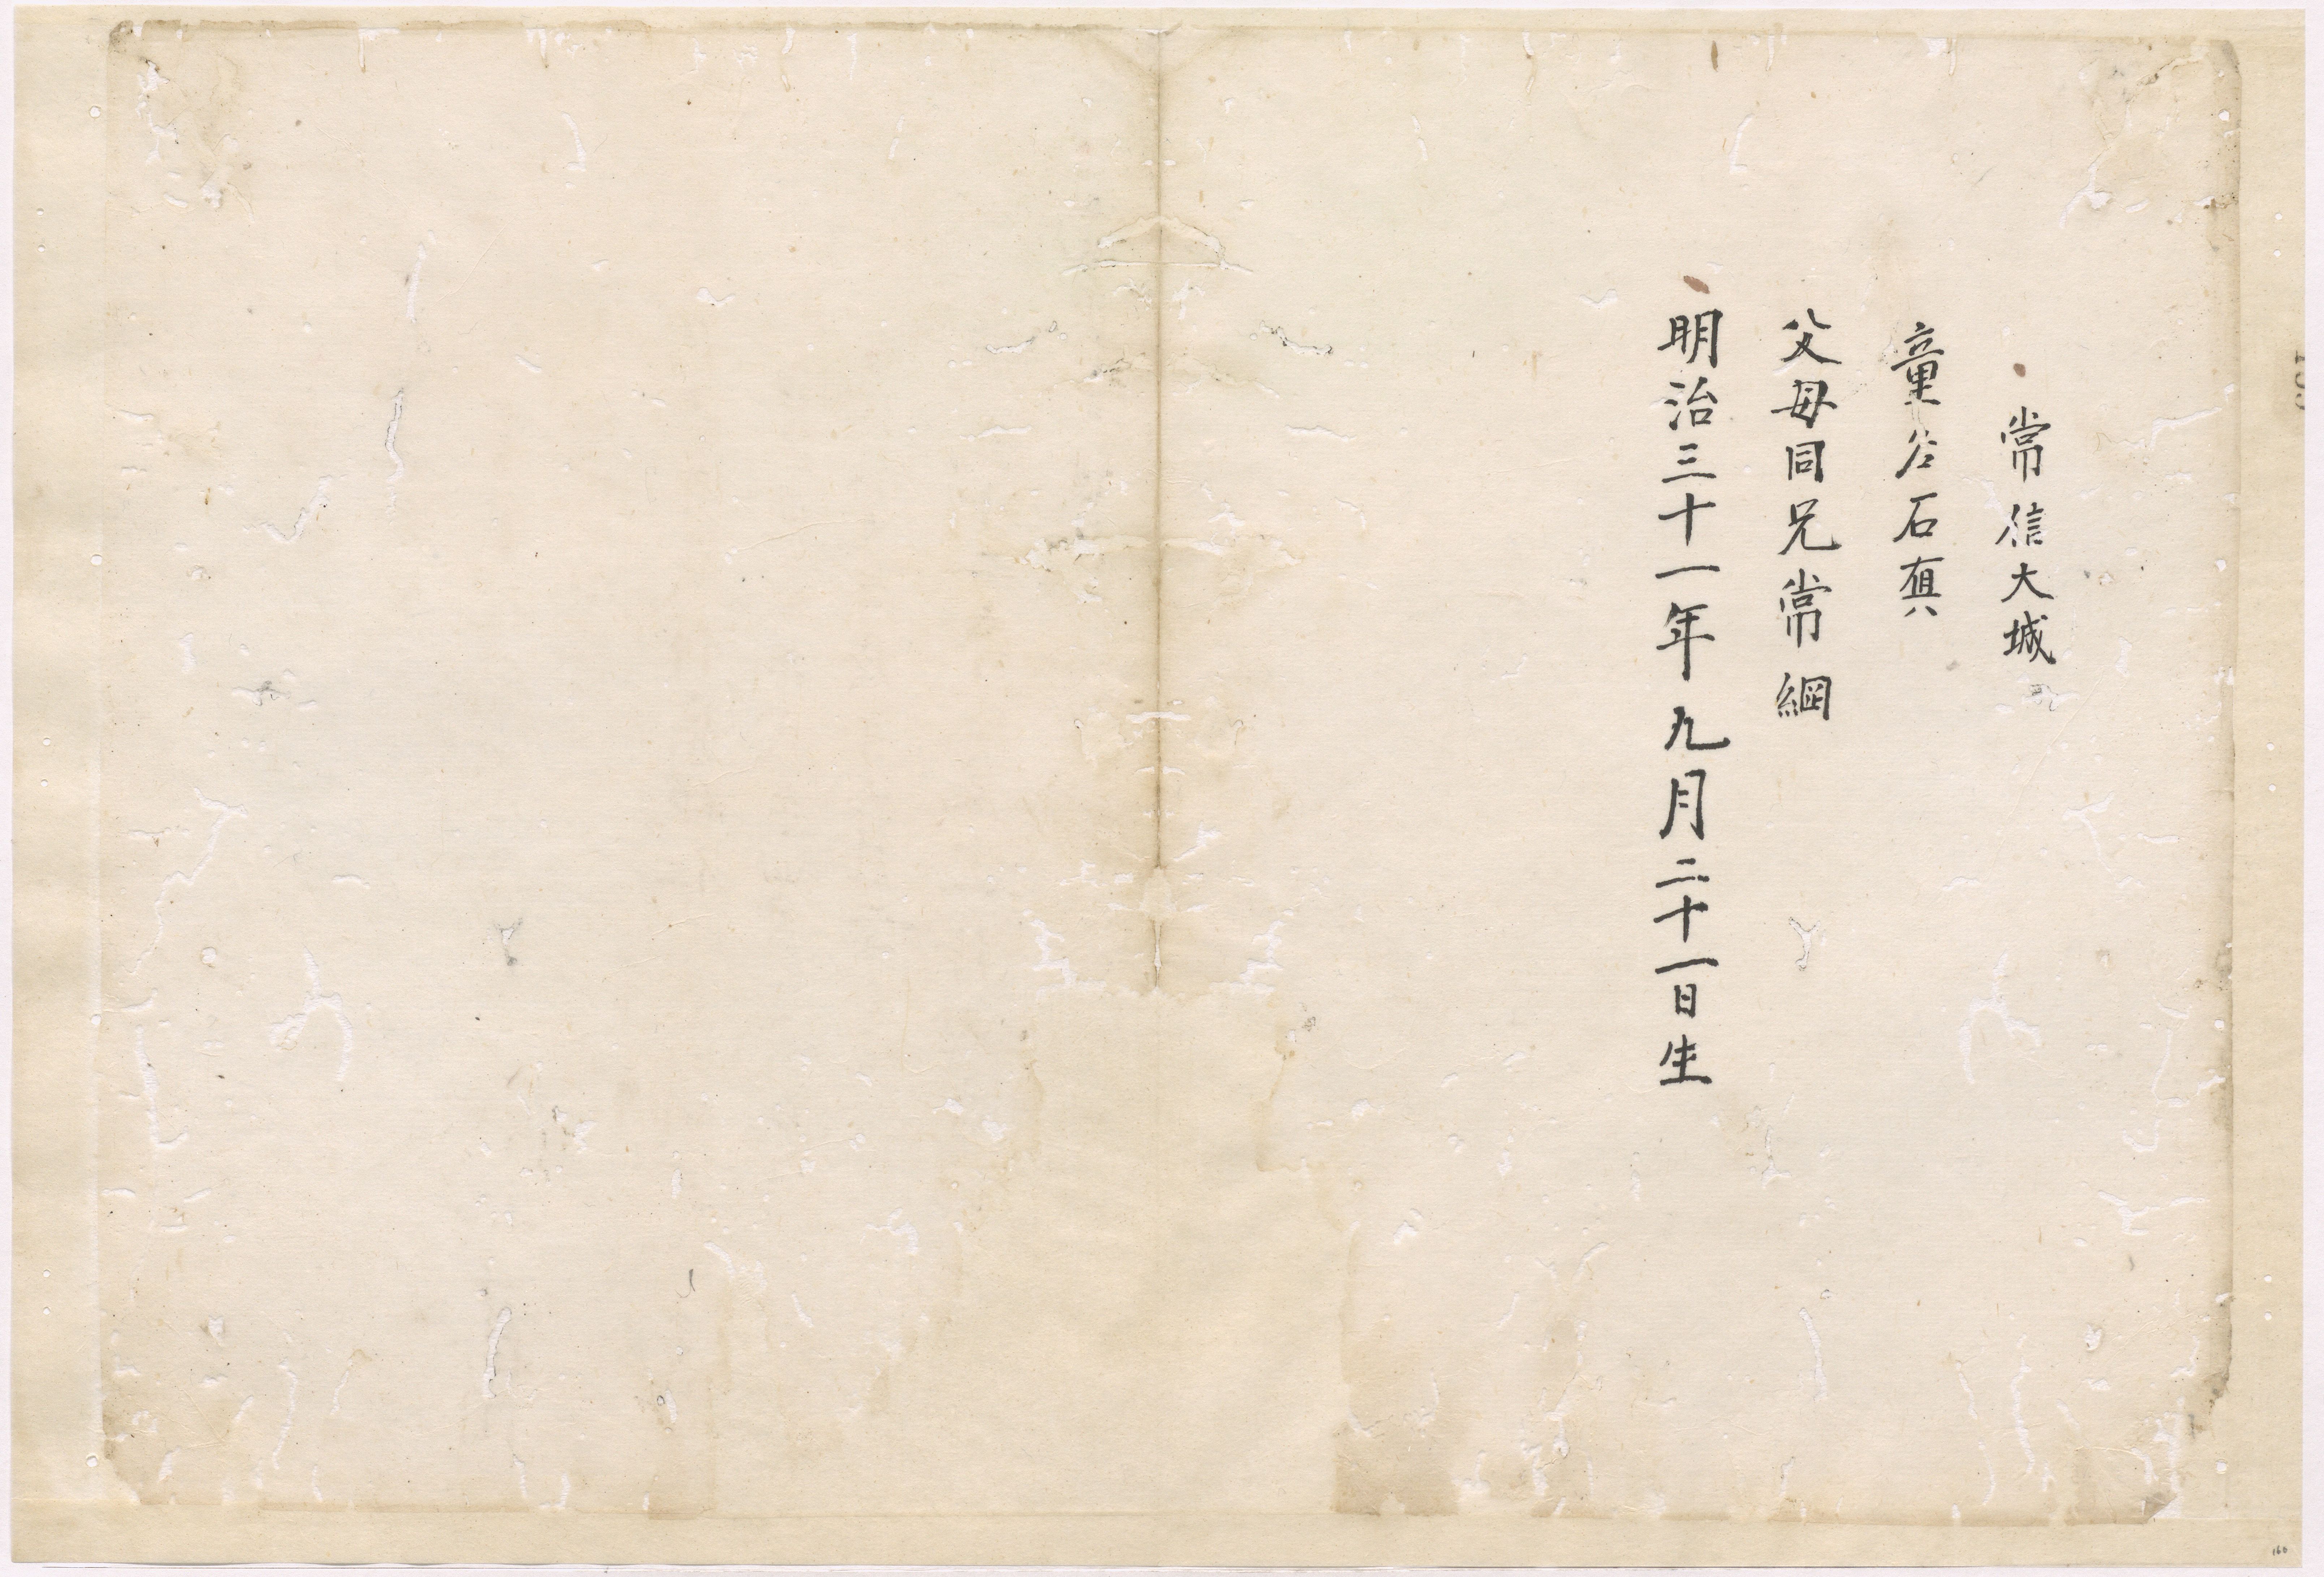 常信大城
童名石真
父母同兄常綱
明治三十一年九月二十一日生
160